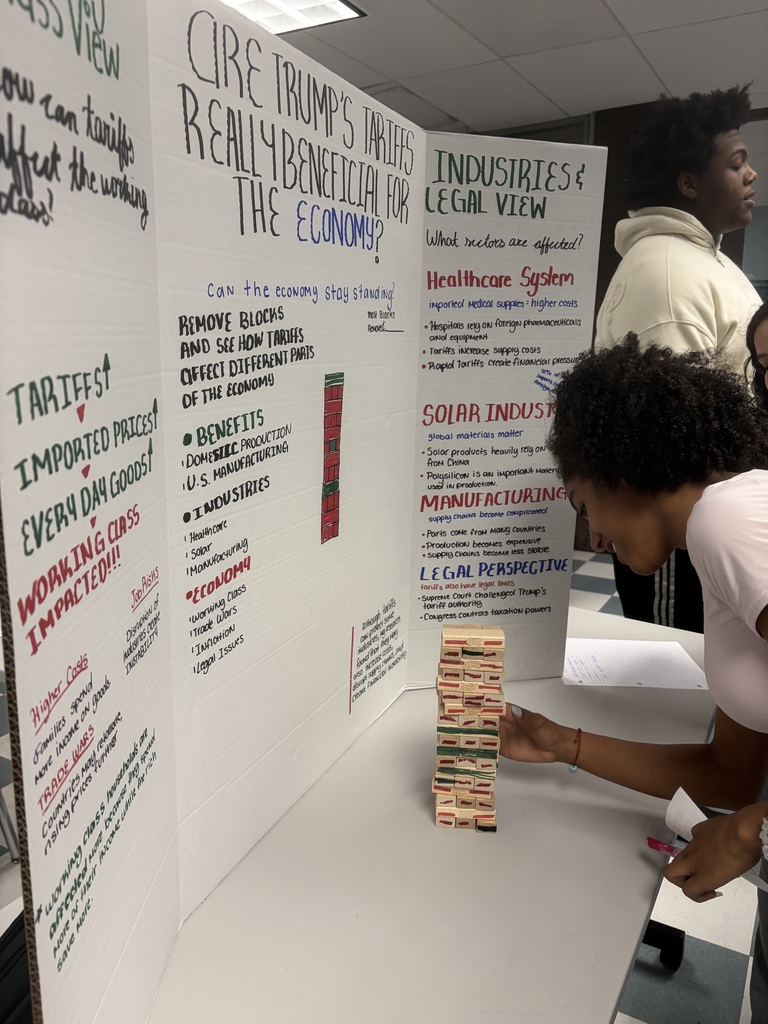 View
how can tariffs
affect the working
class?
TARIFFS↑
IMPORTED PRICES↑
EVERY DAY GOODS↑
WORKING CLASS
IMPACTED!!!
Job Risks
Disruption of
INSTABILITY
Higher Costs
Families spend
more income on goods
TRADE WARS
Countries may
rising prices further
* Working class households are
affected more because they spend
more of their income while the rich
save more.
(ARE TRUMP'S TARIFFS
REALLY BENEFICIAL FOR
THE ECONOMY?
Can the economy stay standing?
REMOVE BLOCKS
AND SEE HOW TARIFFS
AFFECT DIFFERENT PARTS
OF THE ECONOMY
Most Blocks
Removed
• BENEFITS
DOMESTIC PRODUCTION
U.S. MANUFACTURING
• INDUSTRIES
Healthcare
Solar
Manufacturing
• ECONOMY
Working Class
Trade Wars
Inflation
Legal Issues
Although tariffs
can protect some
industries, my research
found that they may
also increase costs,
disrupt supply chains, and
create financial instability
INDUSTRIES &
LEGAL VIEW
What sectors are affected?
Healthcare System
imported Medical supplies = higher costs
• Hospitals rely on foreign pharmaceuticals
and equipment
• Tariffs increase supply costs
• Rapid tariffs create financial pressure
SOLAR INDUST
global materials matter
• Solar products heavily rely on
from China
• Polysilicon is an important material
used in production.
MANUFACTURING
supply chains become complicated
• Parts come from many countries
• Production becomes expensive
• Supply chains become less stable
LEGAL PERSPECTIVE
tariffs also have legal limits
• Supreme Court challenged Trump's
tariff authority
• Congress controls taxation powers